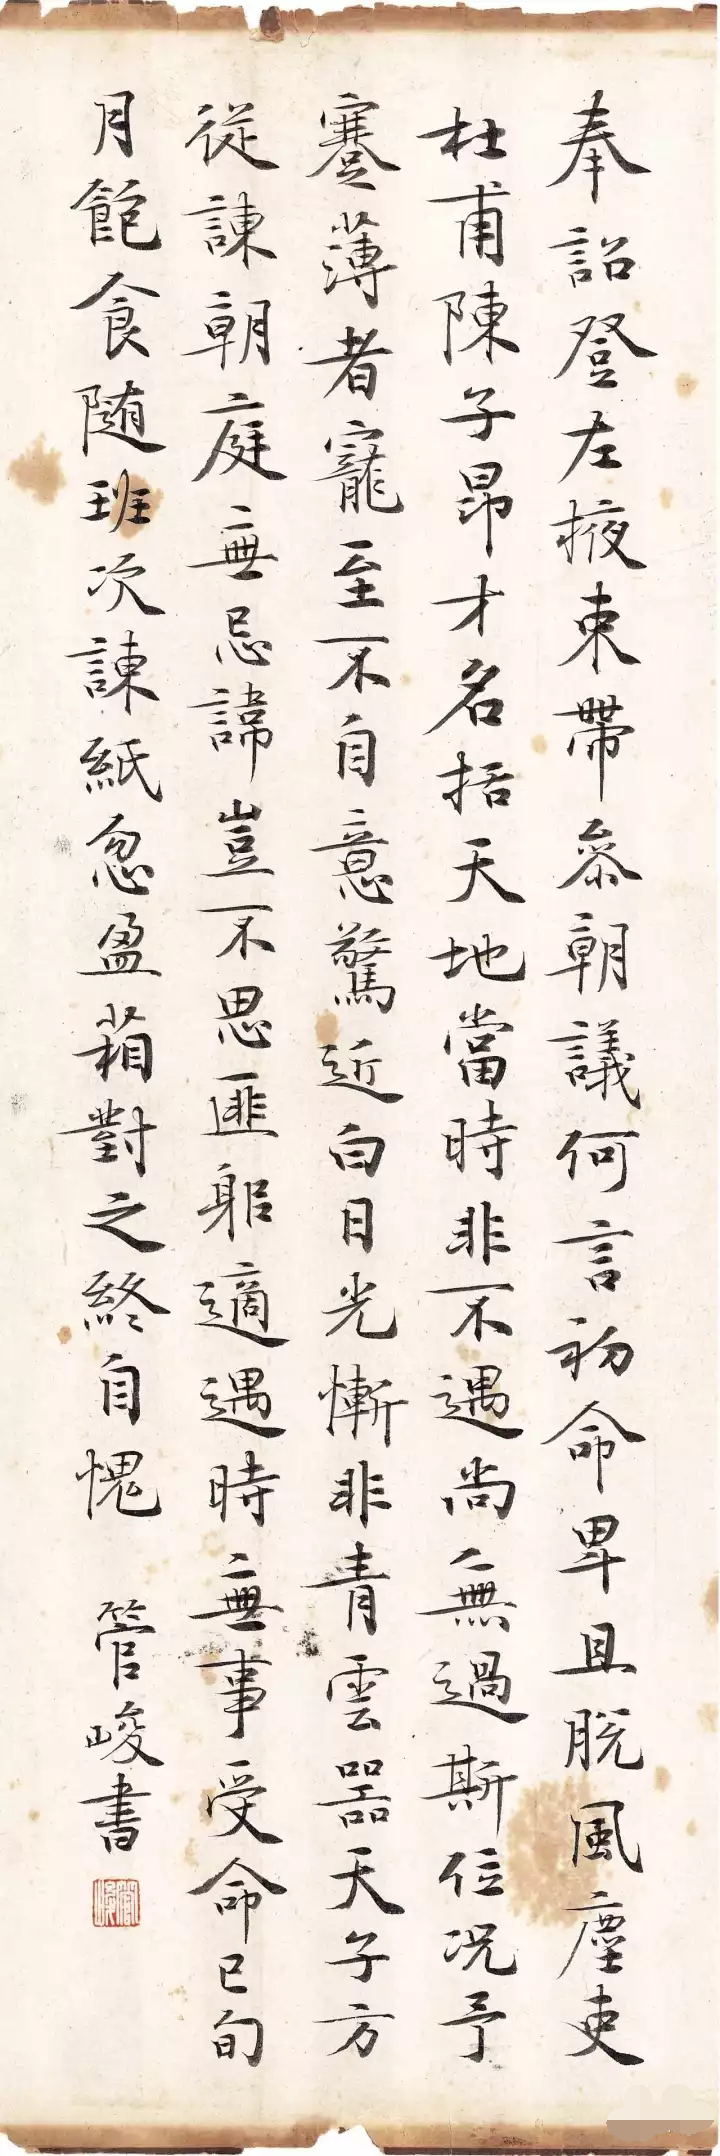 奉詔登左掖束帶參朝議何言初命卑且脫風塵吏
杜甫陳子昂才名括天地當時非不遇尚無過斯位況予
蹇薄者寵至不自意驚近白日光慚非青雲器天子方
從諫朝庭無忌諱豈不思匪躬適遇時無事受命已旬
月飽食隨班次諫紙忽盈箱對之終自愧
管峻書
管峻